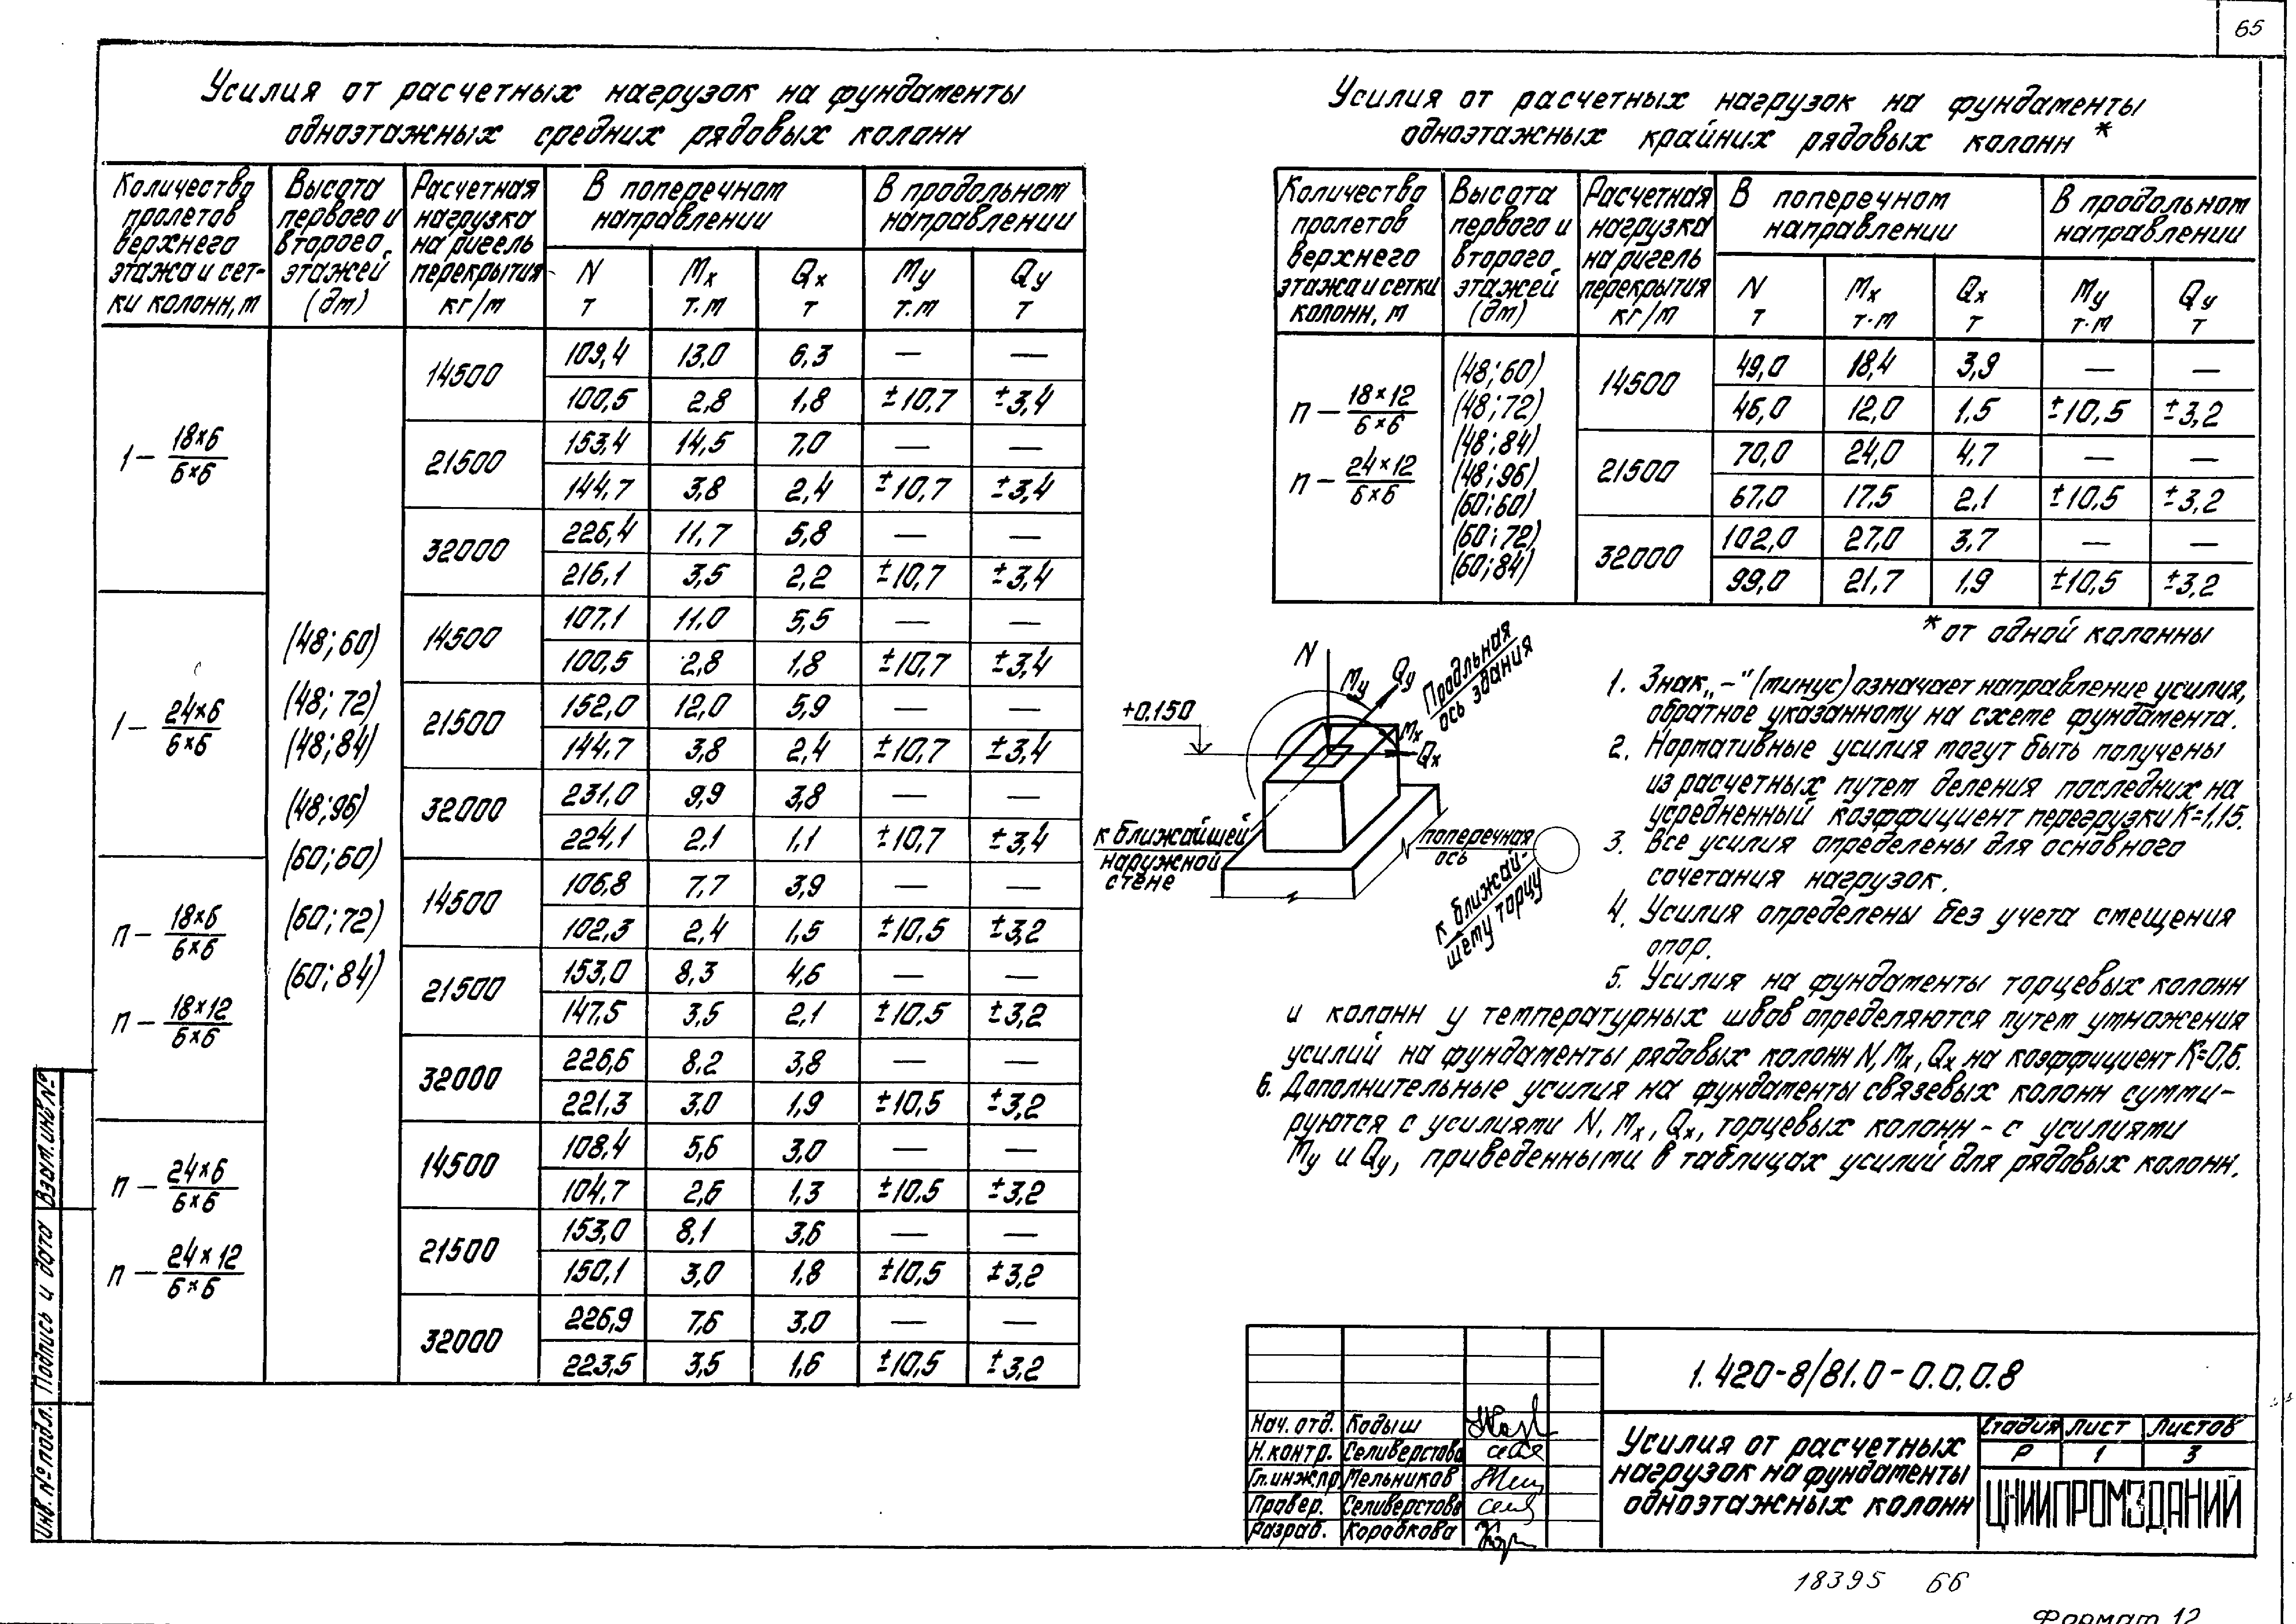 65
Усилия от расчетных нагрузок на фундаменты
одноэтажных средних рядовых колонн
Количество пролетов верхнего этажа и сет-ки колонн, м | Высота первого и второго этажей (дм) | Расчетная нагрузка на ригель перекрытия кг/м | В поперечном направлении | В продольном направлении
N т | Mx т.м | Qx т | My т.м | Qy т
1 – 18×6 / 6×6
(48; 60)
(48; 72)
(48; 84)
(48; 96)
(60; 60)
(60; 72)
(60; 84)
14500
109,4 13,0 6,3 — —
100,5 2,8 1,8 ±10,7 ±3,4
21500
153,4 14,5 7,0 — —
144,7 3,8 2,4 ±10,7 ±3,4
32000
226,4 11,7 5,8 — —
216,1 3,5 2,2 ±10,7 ±3,4
1 – 24×6 / 6×6
14500
107,1 11,0 5,5 — —
100,5 2,8 1,8 ±10,7 ±3,4
21500
152,0 12,0 5,9 — —
144,7 3,8 2,4 ±10,7 ±3,4
32000
231,0 9,9 3,8 — —
224,1 2,1 1,1 ±10,7 ±3,4
п – 18×6 / 6×6
п – 18×12 / 6×6
14500
106,8 7,7 3,9 — —
102,3 2,4 1,5 ±10,5 ±3,2
21500
153,0 8,3 4,6 — —
147,5 3,5 2,1 ±10,5 ±3,2
32000
226,6 8,2 3,8 — —
221,3 3,0 1,9 ±10,5 ±3,2
п – 24×6 / 6×6
п – 24×12 / 6×6
14500
108,4 5,6 3,0 — —
104,7 2,6 1,3 ±10,5 ±3,2
21500
153,0 8,1 3,6 — —
150,1 3,0 1,8 ±10,5 ±3,2
32000
226,9 7,6 3,0 — —
223,5 3,5 1,6 ±10,5 ±3,2
Усилия от расчетных нагрузок на фундаменты
одноэтажных крайних рядовых колонн *
Количество пролетов верхнего этажа и сетки колонн, м | Высота первого и второго этажей (дм) | Расчетная нагрузка на ригель перекрытия кг/м | В поперечном направлении | В продольном направлении
N т | Mx т.м | Qx т | My т.м | Qy т
п – 18×12 / 6×6
п – 24×12 / 6×6
(48; 60)
(48; 72)
(48; 84)
(48; 96)
(60; 60)
(60; 72)
(60; 84)
14500
49,0 18,4 3,9 — —
46,0 12,0 1,5 ±10,5 ±3,2
21500
70,0 24,0 4,7 — —
67,0 17,5 2,1 ±10,5 ±3,2
32000
102,0 27,0 3,7 — —
99,0 21,7 1,9 ±10,5 ±3,2
* от одной колонны
N
My
Qy
Mx
Qx
Продльная
ось здания
+0.150
к ближайшей
наружной
стене
поперечная
ось
к ближай-
шему торцу
1. Знак „–" (минус) означает направление усилия,
обратное указанному на схеме фундамента.
2. Нормативные усилия могут быть получены
из расчетных путем деления последних на
усредненный коэффициент перегрузки К=1,15.
3. Все усилия определены для основного
сочетания нагрузок.
4. Усилия определены без учета смещения
опор.
5. Усилия на фундаменты торцевых колонн
и колонн у температурных швов определяются путем умножения
усилий на фундаменты рядовых колонн N, Mx, Qx на коэффициент К=0,6.
6. Дополнительные усилия на фундаменты связевых колонн сумми-
руются с усилиями N, Mx, Qx, торцевых колонн – с усилиями
My и Qy, приведенными в таблицах усилий для рядовых колонн.
1.420-8/81.0-0.0.0.8
Нач. отд. Кодыш
Н. контр. Селиверстова
Гл. инж. пр. Мельников
Провер. Селиверстова
Разраб. Коробкова
Усилия от расчетных
нагрузок на фундаменты
одноэтажных колонн
Стадия Лист Листов
Р 1 3
ЦНИИПРОМЗДАНИЙ
Инв. № подл. Подпись и дата Взам. инв №
18395 66
Формат 12